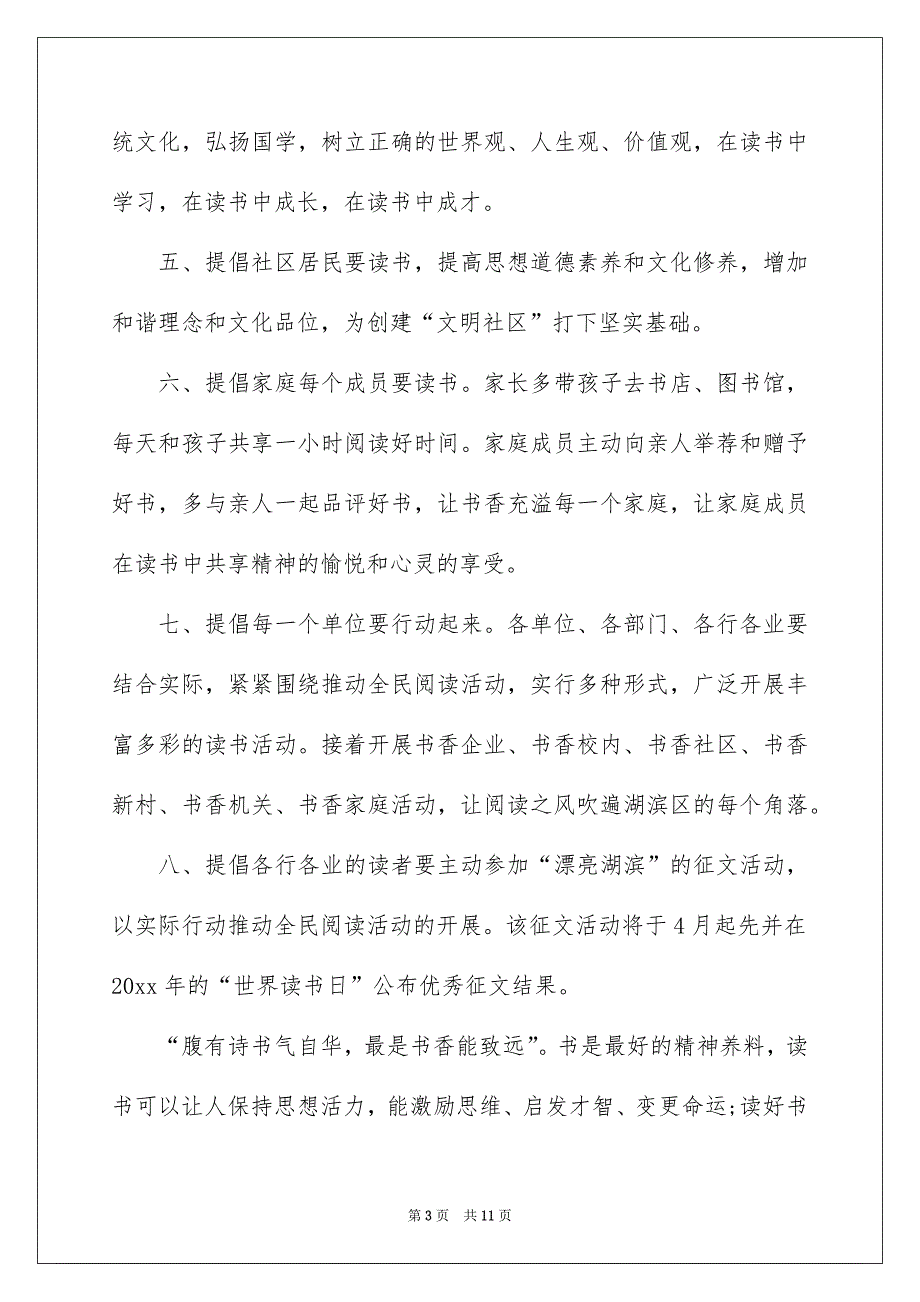 统文化，弘扬国学，树立正确的世界观、人生观、价值观，在读书中
学习，在读书中成长，在读书中成才。
五、提倡社区居民要读书，提高思想道德素养和文化修养，增加
和谐理念和文化品位，为创建“文明社区”打下坚实基础。
六、提倡家庭每个成员要读书。家长多带孩子去书店、图书馆，
每天和孩子共享一小时阅读好时间。家庭成员主动向亲人举荐和赠予
好书，多与亲人一起品评好书，让书香充溢每一个家庭，让家庭成员
在读书中共享精神的愉悦和心灵的享受。
七、提倡每一个单位要行动起来。各单位、各部门、各行各业要
结合实际，紧紧围绕推动全民阅读活动，实行多种形式，广泛开展丰
富多彩的读书活动。接着开展书香企业、书香校内、书香社区、书香
新村、书香机关、书香家庭活动，让阅读之风吹遍湖滨区的每个角落。
八、提倡各行各业的读者要主动参加“漂亮湖滨”的征文活动，
以实际行动推动全民阅读活动的开展。该征文活动将于 4 月起先并在
20xx 年的“世界读书日”公布优秀征文结果。
“腹有诗书气自华，最是书香能致远”。书是最好的精神养料，读
书可以让人保持思想活力，能激励思维、启发才智、变更命运;读好书
第 3 页 共 11 页